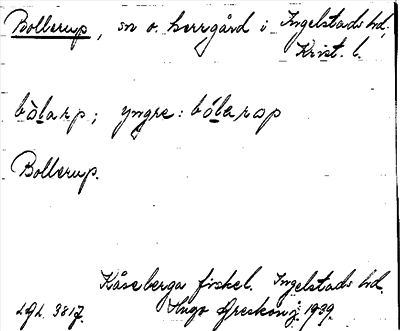 Bollerup, sn o. herrgård i Ingelstads hd,
Krist. l.
bòlarp; yngre: bólarop
Bollerup.
Kåseberga fiskel. Ingelstads hd.
LGL 3817. Hugo Areskoug. 1939.